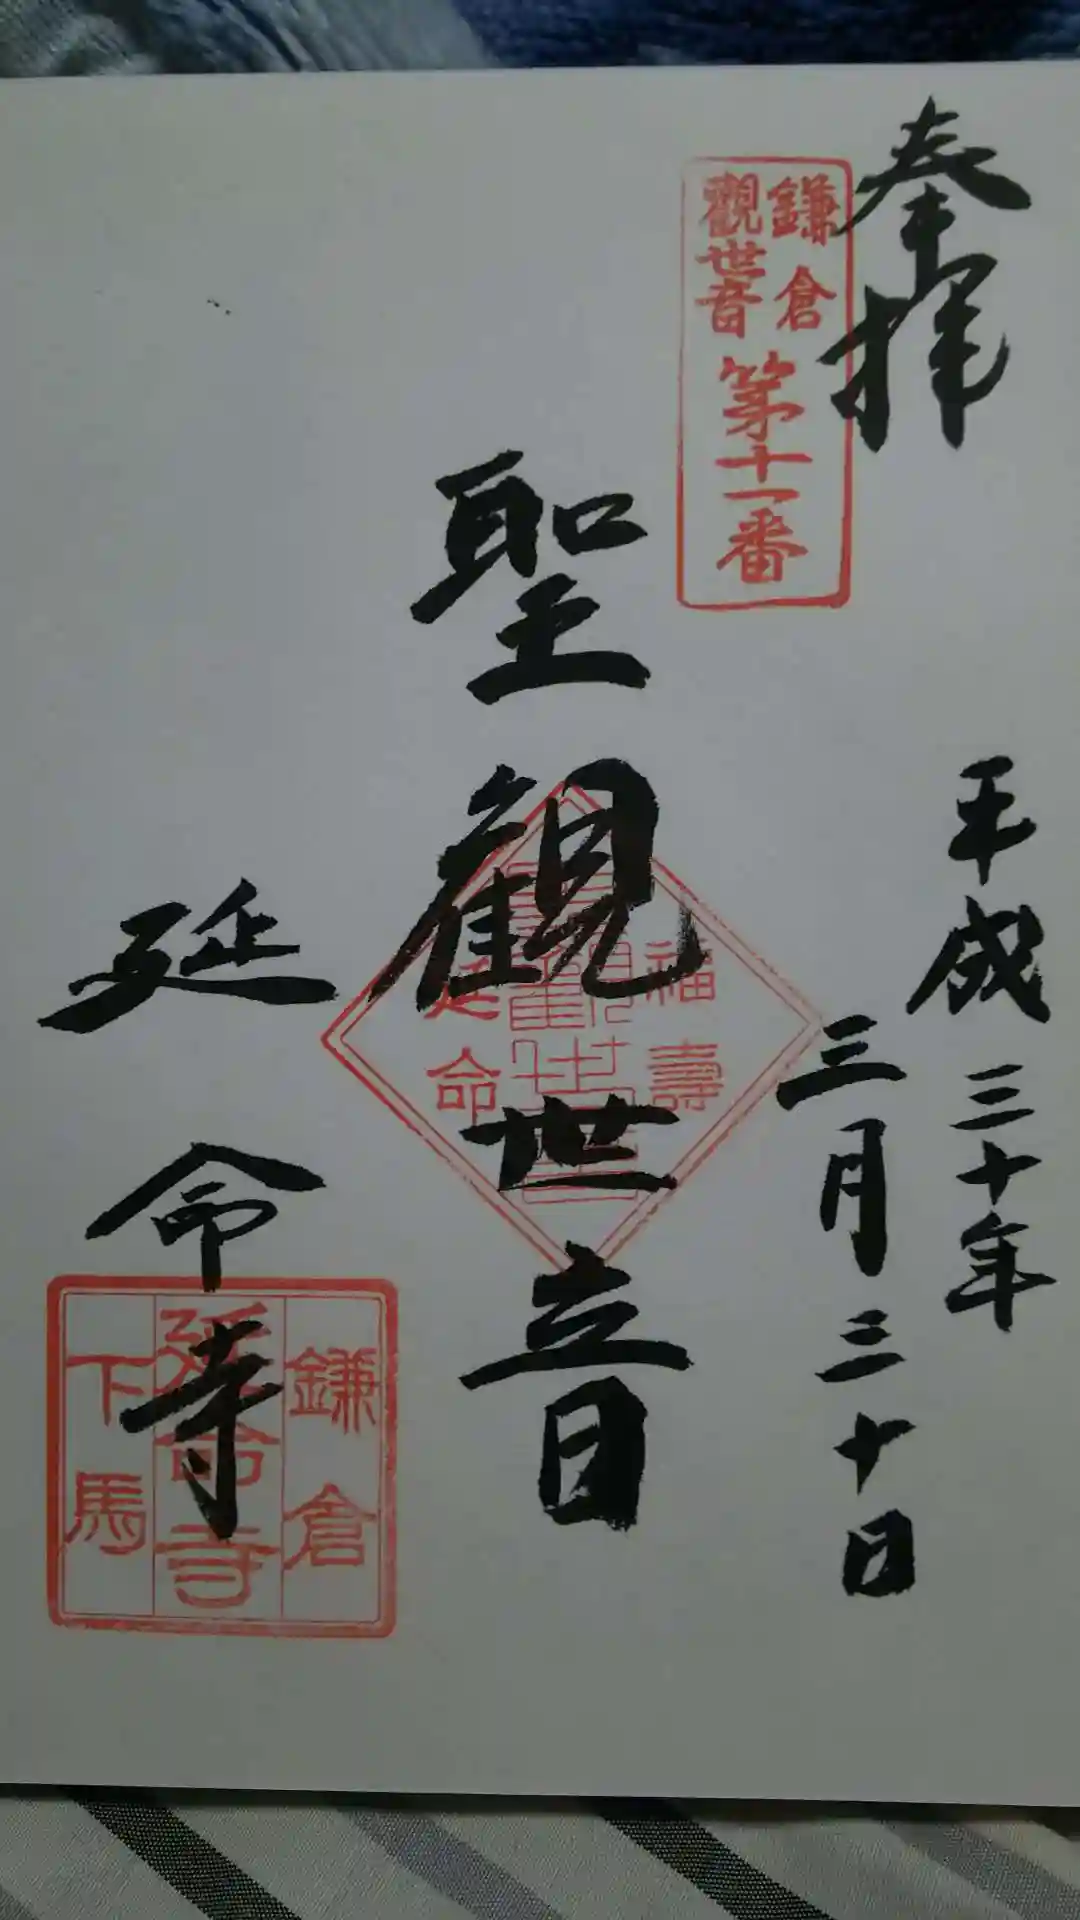 奉拝
鎌倉
觀世音
第十一番
平成三十年
三月三十日
聖観世音
福壽
延命
延命寺
鎌倉
延命寺
下馬